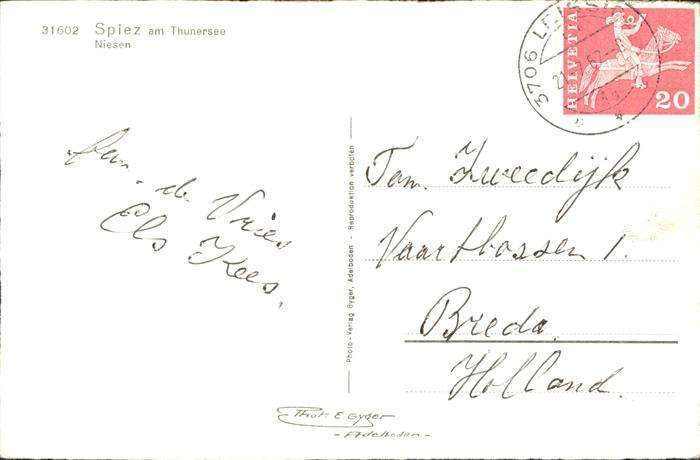 31602 Spiez am Thunersee
Niesen
Fam. de Vries
Els Kees.
Photo-Verlag Gyger, Adelboden - Reproduktion verboten
HELVETIA
20
3706
Fam. Zweedijk
Vaartbossen 1.
Breda.
Holland.
Phot. E Gyger
- Adelboden -